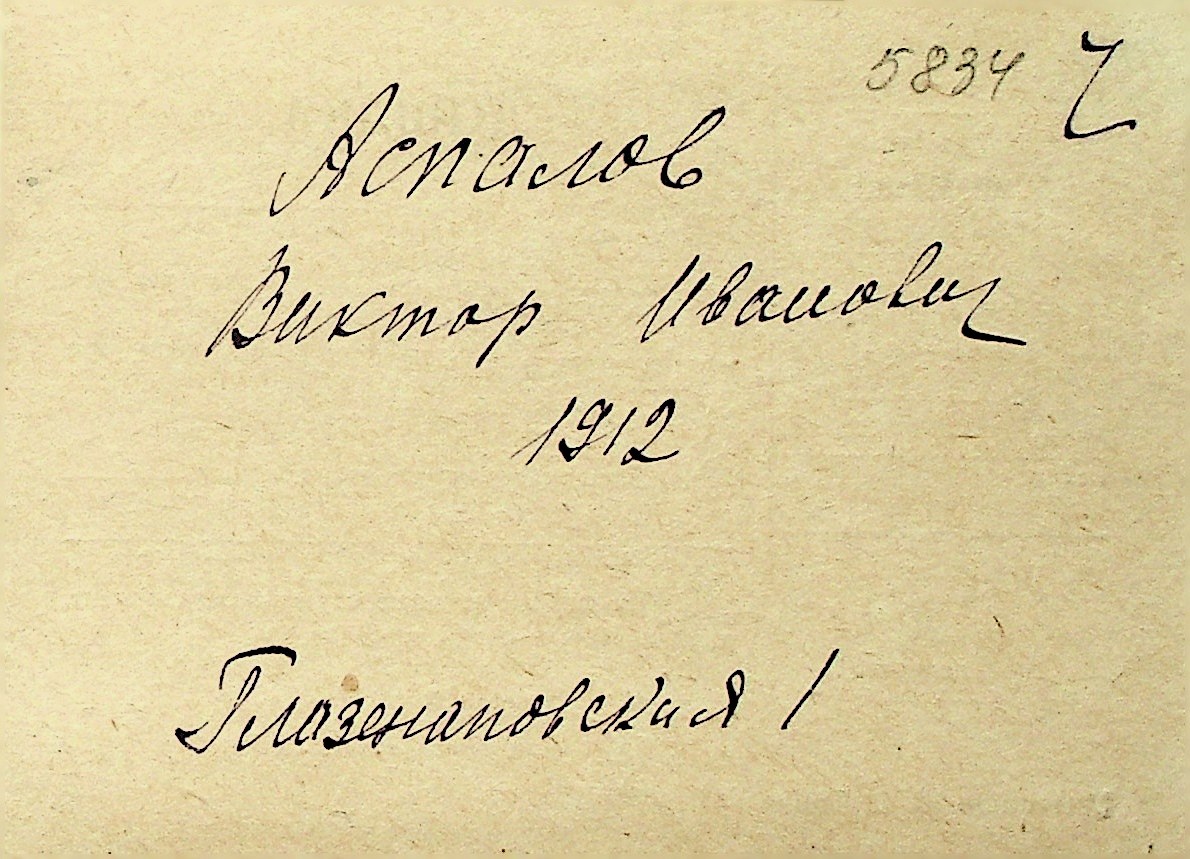 5834
Аспалов
Виктор Иванович
1912
Глазенаповская 1